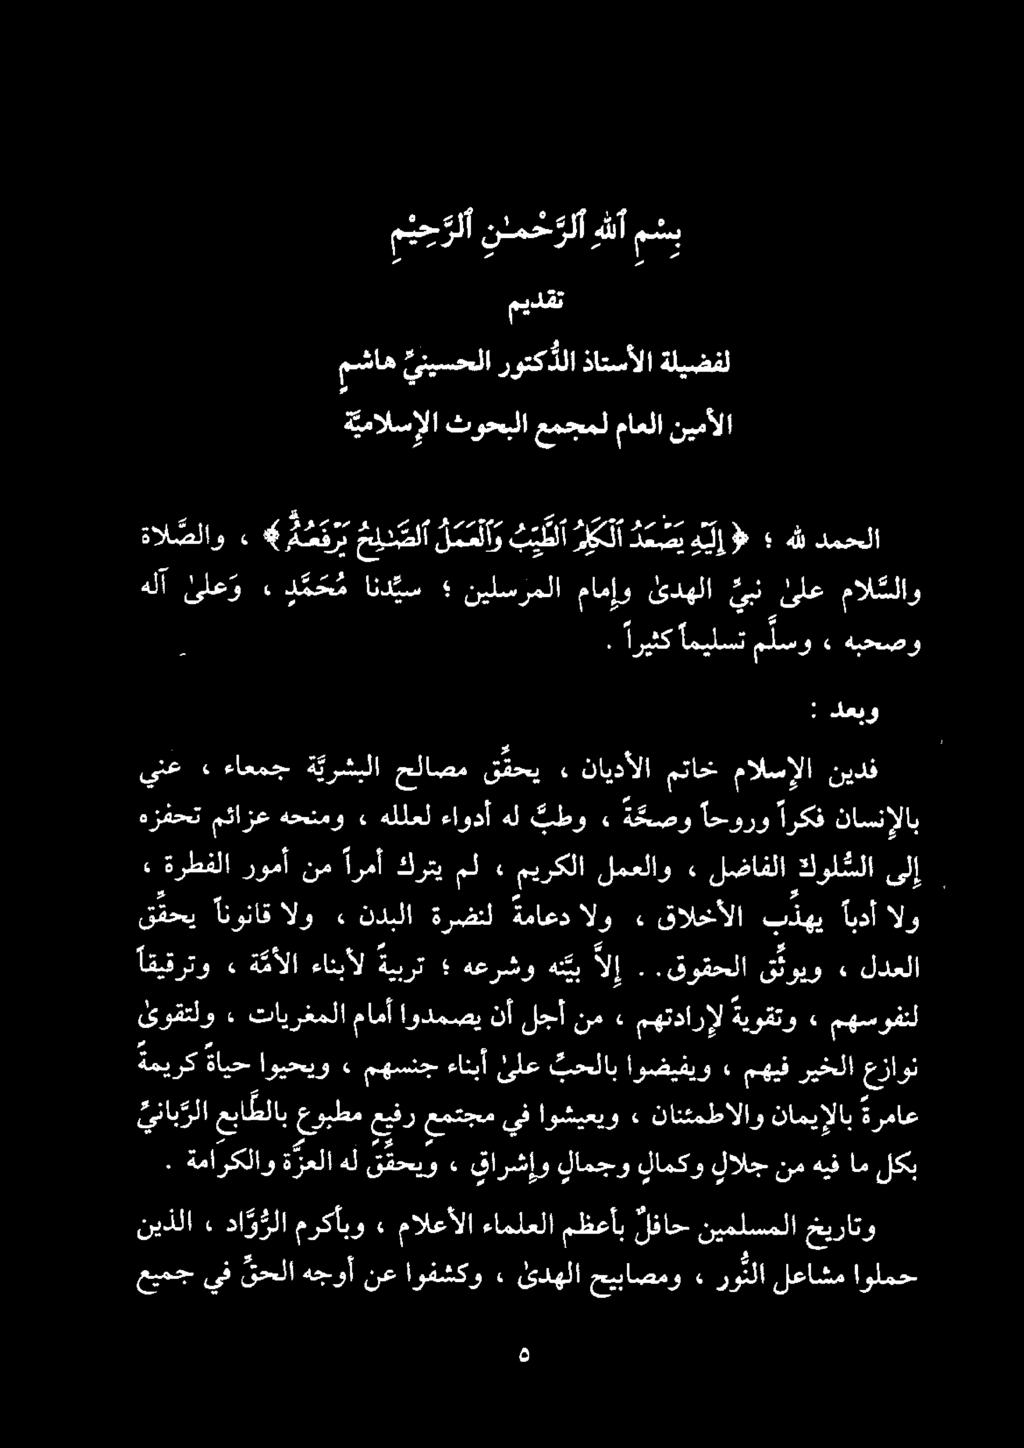 بِسْمِ ٱللهِ ٱلرَّحْمـٰنِ ٱلرَّحِيْمِ
تقديم
لفضيلة الأستاذ الدُّكتور الحسينيِّ هاشمٍ
الأمين العام لمجمع البحوث الإسلاميَّة
الحمد لله ؛ ﴿ إِلَيْهِ يَصْعَدُ ٱلْكَلِمُ ٱلطَّيِّبُ وَٱلْعَمَلُ ٱلصَّـٰلِحُ يَرْفَعُهُۥۚ ﴾ ، والصَّلاة
والسَّلام علىٰ نبيِّ الهدىٰ وإمام المرسلين ؛ سيِّدنا مُحَمَّدٍ ، وَعلىٰ آله
وصحبه ، وسلَّم تسليماً كثيراً .
وبعد :
فدين الإسلام خاتم الأديان ، يحقِّق مصالح البشريَّة جمعاء ، عني
بالإنسان فكراً وروحاً وصحَّةً ، وطبَّ له أدواء لعلله ، ومنحه عزائم تحفزه
إلى السُّلوك الفاضل ، والعمل الكريم ، لم يترك أمراً من أمور الفطرة ،
ولا أدباً يهذِّب الأخلاق ، ولا دعامةً لنضرة البدن ، ولا قانوناً يحقِّق
العدل ، ويوثِّق الحقوق . . إلاَّ بيَّنه وشرعه ؛ تربيةً لأبناء الأمَّة ، وترقيقاً
لنفوسهم ، وتقويةً لإرادتهم ، من أجل أن يصمدوا أمام المغريات ، ولتقوىٰ
نوازع الخير فيهم ، ويفيضوا بالحبِّ علىٰ أبناء جنسهم ، ويحيوا حياةً كريمةً
عامرةً بالإيمان والاطمئنان ، ويعيشوا في مجتمعٍ رفيعٍ مطبوعٍ بالطَّابع الرَّبانيِّ
بكل ما فيه من جلالٍ وكمالٍ وجمالٍ وإشراقٍ ، ويحقِّقَ له العزَّة والكرامة .
وتاريخ المسلمين حافلٌ بأعظم العلماء الأعلام ، وبأكرم الرُّوَّاد ، الذين
حملوا مشاعل النُّور ، ومصابيح الهدىٰ ، وكشفوا عن أوجه الحقِّ في جميع
٥